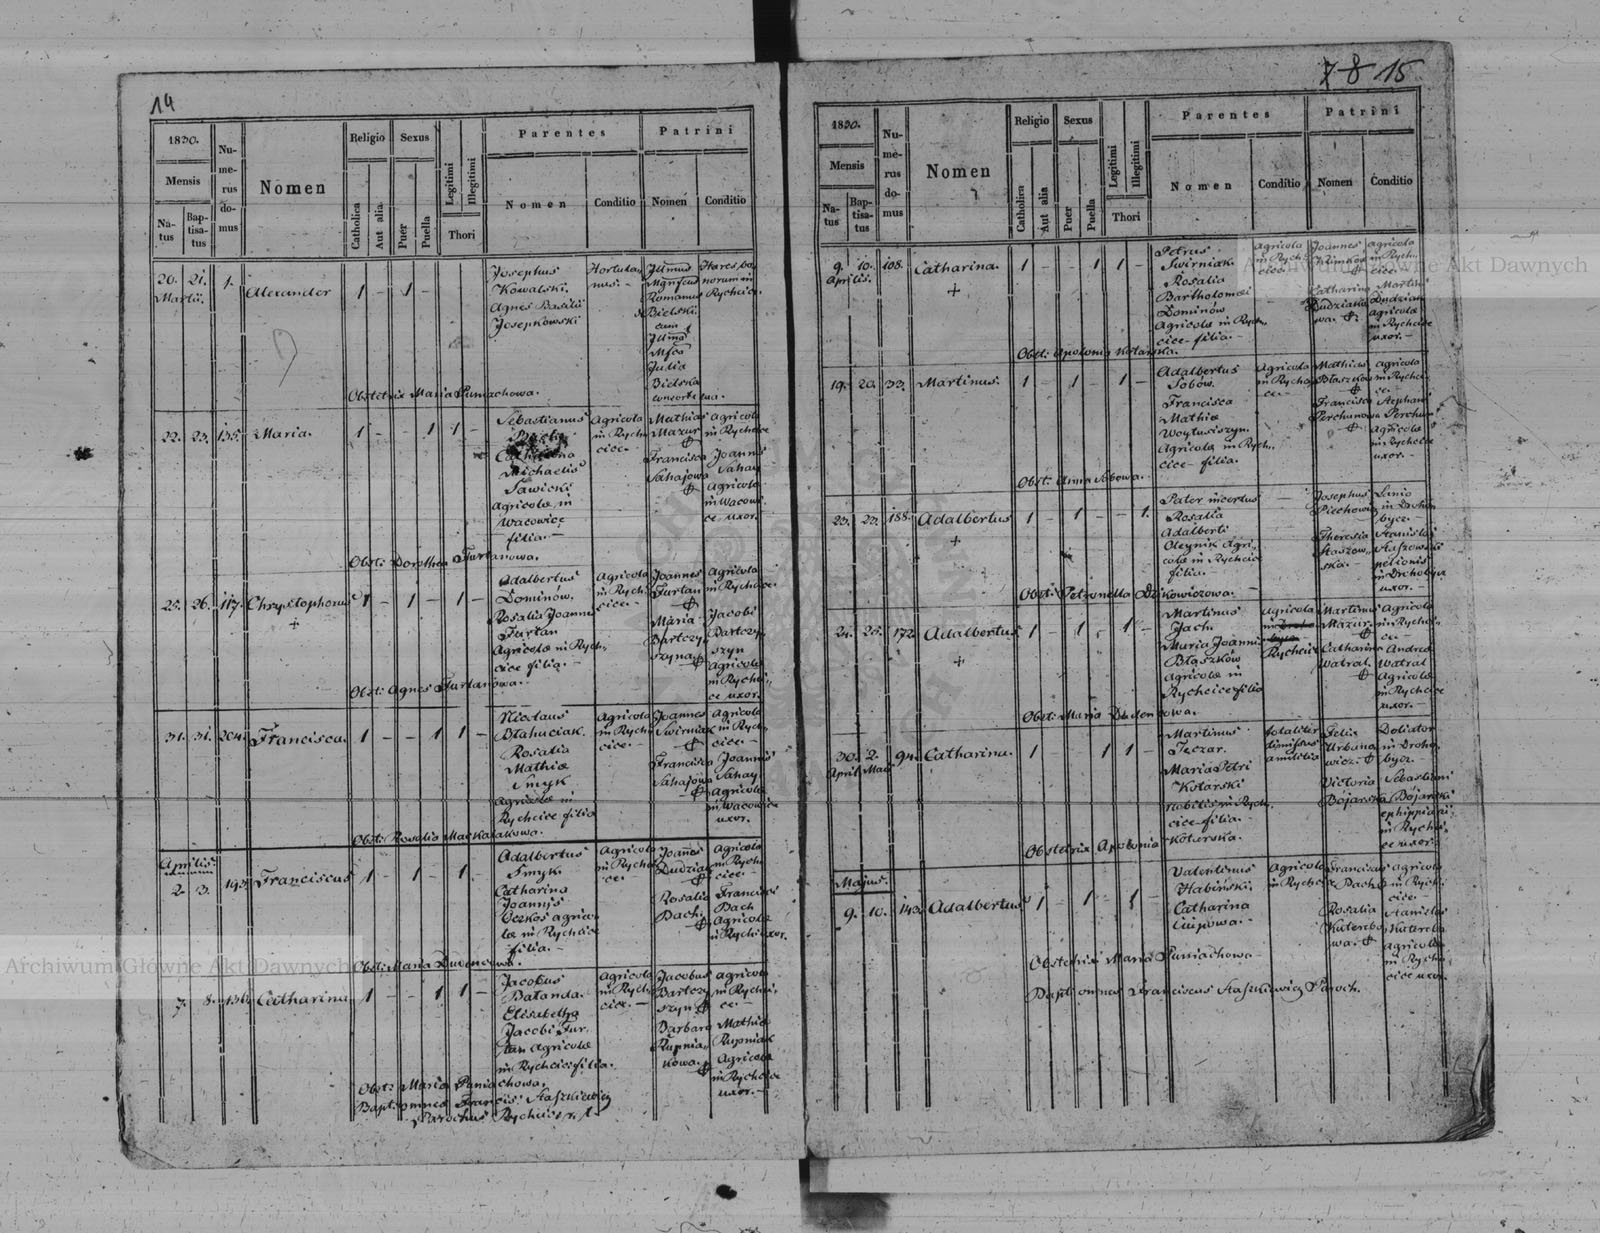 14
1830.
Mensis
Na-
tus
Bap-
tisa-
tus
Nu-
me-
rus
do-
mus
Nomen
Religio
Catholica
Aut alia
Sexus
Puer
Puella
Legitimi
Illegitimi
Thori
Parentes
Nomen
Conditio
Patrini
Nomen
Conditio
20. 21. 1.
Martii.
Alexander
1 - 1 -
Josephus
Kowalski.
Agnes Basilii
Josepkowski
Hortula-
nus. -
Romanus
Bielski
cum
Julia
Bielska
consorte sua.
Haeres bo-
norum in
Rychcice.
Obstetrix Maria Puniachowa.
22. 23. 135. Maria.
1 - - 1 1 -
Sebastianus
Catharina
Michaelis
Sawicki
Agricolae in
Wacowice
filia. -
Agricola
in Rych-
cice.
Mathias
Mazur
Francisca
Sahajowa
Agricola
in Rychcice
Joannis
Sahay
Agricola
in Wacowi-
ce uxor.
Obst: Dorothea Furtanowa.
25. 26. 117. Chrystophorus
+
1 - 1 - 1 -
Adalbertus
Dominów.
Rosalia Joannis
Furtan
Agricolae in Rych-
cice filia. -
Agricola
in Rych-
cice. -
Joannes
Furtan
Maria
Bartczy-
szyna
Agricola
in Rychcice
Jacobi
Bartczy-
szyn
Agricola
in Rychci-
ce uxor.
Obst: Agnes Furtanowa. -
31. 31. 204. Francisca.
1 - - 1 1 -
Nicolaus
Błahuciak.
Rosalia
Mathiae
Smyk
Agricolae in
Rychcice filia
Agricola
in Rych-
cice. -
Joannes
Swirniak
Francisca
Sahajowa
Agricola
in Rych-
cice. -
Joannis
Sahay
Agricola
in Wacowice
uxor.
Obst: Rosalia Mackalakowa.
Aprilis.
2. 3. 193. Franciscus
1 - 1 - 1. -
Adalbertus
Smyk.
Catharina
Joannis
Agrico-
lae in Rychcice
filia. -
Agricola
in Rychci-
ce.
Joannes
Dudziak
Rosalia
Bach
Agricola
in Rych-
cice. -
Francisci
Bach
Agricola
in Rychc. uxor.
Obst: Maria Dudencowa.
7. 8. 136. Catharina
1 - - 1 1 -
Jacobus
Batanda.
Elisabetha
Jacobi Fur-
tan Agricolae
in Rychcice filia.
Agricola
in Rych-
cice. -
Jacobus
Bartczy-
szyn
Barbara
Rupnia-
kowa.
Agricola
in Rychci-
ce. -
Mathiae
Rupniak
Agricola
in Rychcice
uxor. -
Obst: Maria Puniachowa.
Bapt: omnes Francis: Staszkiewicz
Parochus Rychcice
7 8 15
1830.
Mensis
Na-
tus
Bap-
tisa-
tus
Nu-
me-
rus
do-
mus
Nomen
Religio
Catholica
Aut alia
Sexus
Puer
Puella
Legitimi
Illegitimi
Thori
Parentes
Nomen
Conditio
Patrini
Nomen
Conditio
9. 10. 108. Catharina.
Aprilis.
+
1 - - 1 1 -
Petrus
Swirniak.
Rosalia
Bartholomaei
Dominów
Agricolae in Rych-
cice filia. -
Agricola
in Rych-
cice.
Joannes
Klimkow
Catharina
Dudziako-
wa.
Agricola
in Rych-
cice.
Martini
Dudziak
Agricolae
in Rychcice
uxor. -
Obst: Apolonia Kotarska.
19. 20. 33. Martinus.
1 - 1 - 1 -
Adalbertus
Sobów.
Francisca
Mathiae
Woytusiszyn.
Agricolae in Rych-
cice filia.
Agricola
in Rychci-
ce. -
Mathias
Błaszków
Francisca
Perchunowa
Agricola
in Rychci-
ce.
Stephani
Perchun
Agricolae
in Rychcice
uxor. -
Obst: Anna Sobowa.
23. 23. 188. Adalbertus
+
1 - 1 - - 1.
Pater incertus
Rosalia
Adalberti
Oleynik Agri-
colae in Rychcice
filia.
Josephus
Piechowicz
Theresia
Staszow-
ska.
Lanio
in Droho-
bycz.
Stanislai
Staszowski
pelionis
in Drohobycz
uxor. -
Obst: Petronella Dzikowiczowa. -
24. 25. 172. Adalbertus
+
1 - 1 - 1 -
Martinus
Jach.
Maria Joannis
Błaszków
Agricolae in
Rychcice filia
Agricola
Rychcice
Martinus
Mazur.
Catharina
Watral
Agricola
in Rychci-
ce. -
Andreae
Watral
Agricolae
in Rychcice
uxor. -
Obst: Maria Dudencowa.
30. 2. 94. Catharina.
April. Maii
1 - - 1 1 -
Martinus
Teczar.
Maria Petri
Kotarski
nobilis in Rych-
cice filia. -
totaliter
dimissus
a militia
Felix
Urbano-
wicz.
Victoria
Bojarska
Doliator
in Droho-
bycz.
Sebastiani
Bojarski
ephippiarii
in Rychci-
ce uxor.
Obstetrix Apolonia Kotarska.
Majus.
9. 10. 143. Adalbertus
1 - 1 - 1 -
Valentinus
Habiński.
Catharina
Cuipowa. -
Agricola
in Rychc.
Franciscus
Bach
Rosalia
Katerebo-
wa.
Agricola
in Rych-
cice. -
Stanislai
Katereba
Agricolae
in Rych-
cice uxor.
Obstetrix Maria Puniachowa -
Bapt: omnes Franciscus Staszkiewicz Paroch.
Archiwum Główne Akt Dawnych
Archiwum Główne Akt Dawnych